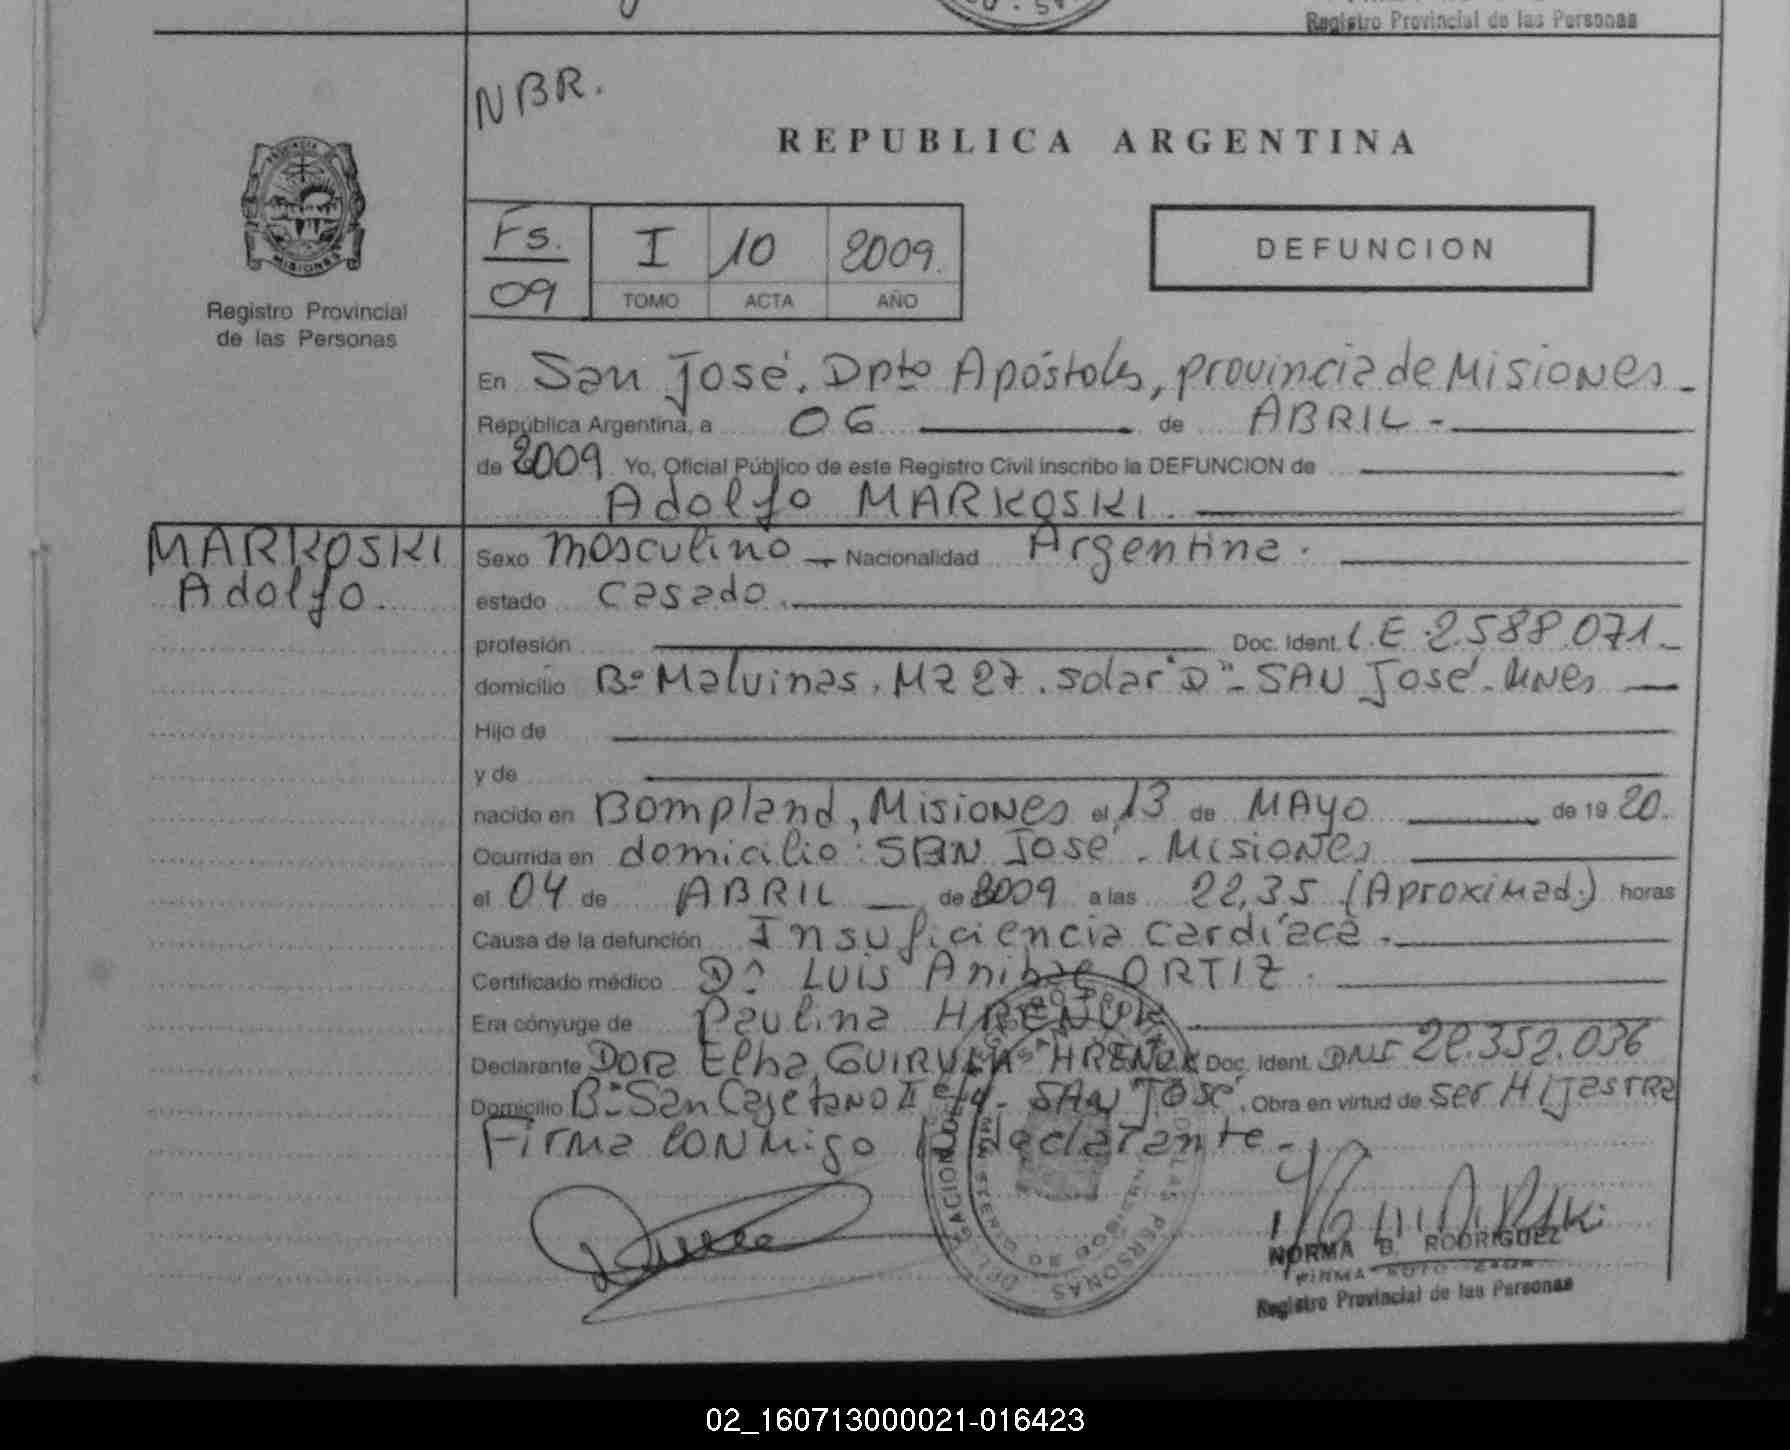 Registro Provincial de las Personas
NBR.
REPUBLICA ARGENTINA
PROVINCIA DE
MISIONES
Registro Provincial
de las Personas
Fs.
09
I 10 2009.
TOMO ACTA AÑO
DEFUNCION
En San José. Dpto Apóstoles, provincia de Misiones -
República Argentina, a 06 de ABRIL -
de 2009 Yo, Oficial Público de este Registro Civil inscribo la DEFUNCION de
Adolfo MARKOSKI.
MARKOSKI
Adolfo.
Sexo Masculino - Nacionalidad Argentina.
estado casado.
profesión Doc. Ident. L.E 2.588.071 -
domicilio Bº Malvinas, Mz 27. solar "D" - SAN José - Mnes
Hijo de
y de
nacido en Bompland, Misiones el 13 de MAYO de 19 20.
Ocurrida en domicilio: SAN José. Misiones
el 04 de ABRIL de 2009 a las 22,35 (Aproximad.) horas
Causa de la defunción Insuficiencia cardíaca.
Certificado médico Dr. LUIS Anibal ORTIZ.
Era cónyuge de Paulina HRENUK
Declarante Dora Elba HRENUK Doc. Ident. DNI 22.352.036
Domicilio Bº San Cajetano II - SAN José. Obra en virtud de ser HIJASTRA
Firma CONMigo declarante -
NORMA B. RODRIGUEZ
FIRMA AUTORIZADA
Registro Provincial de las Personas
02_160713000021-016423